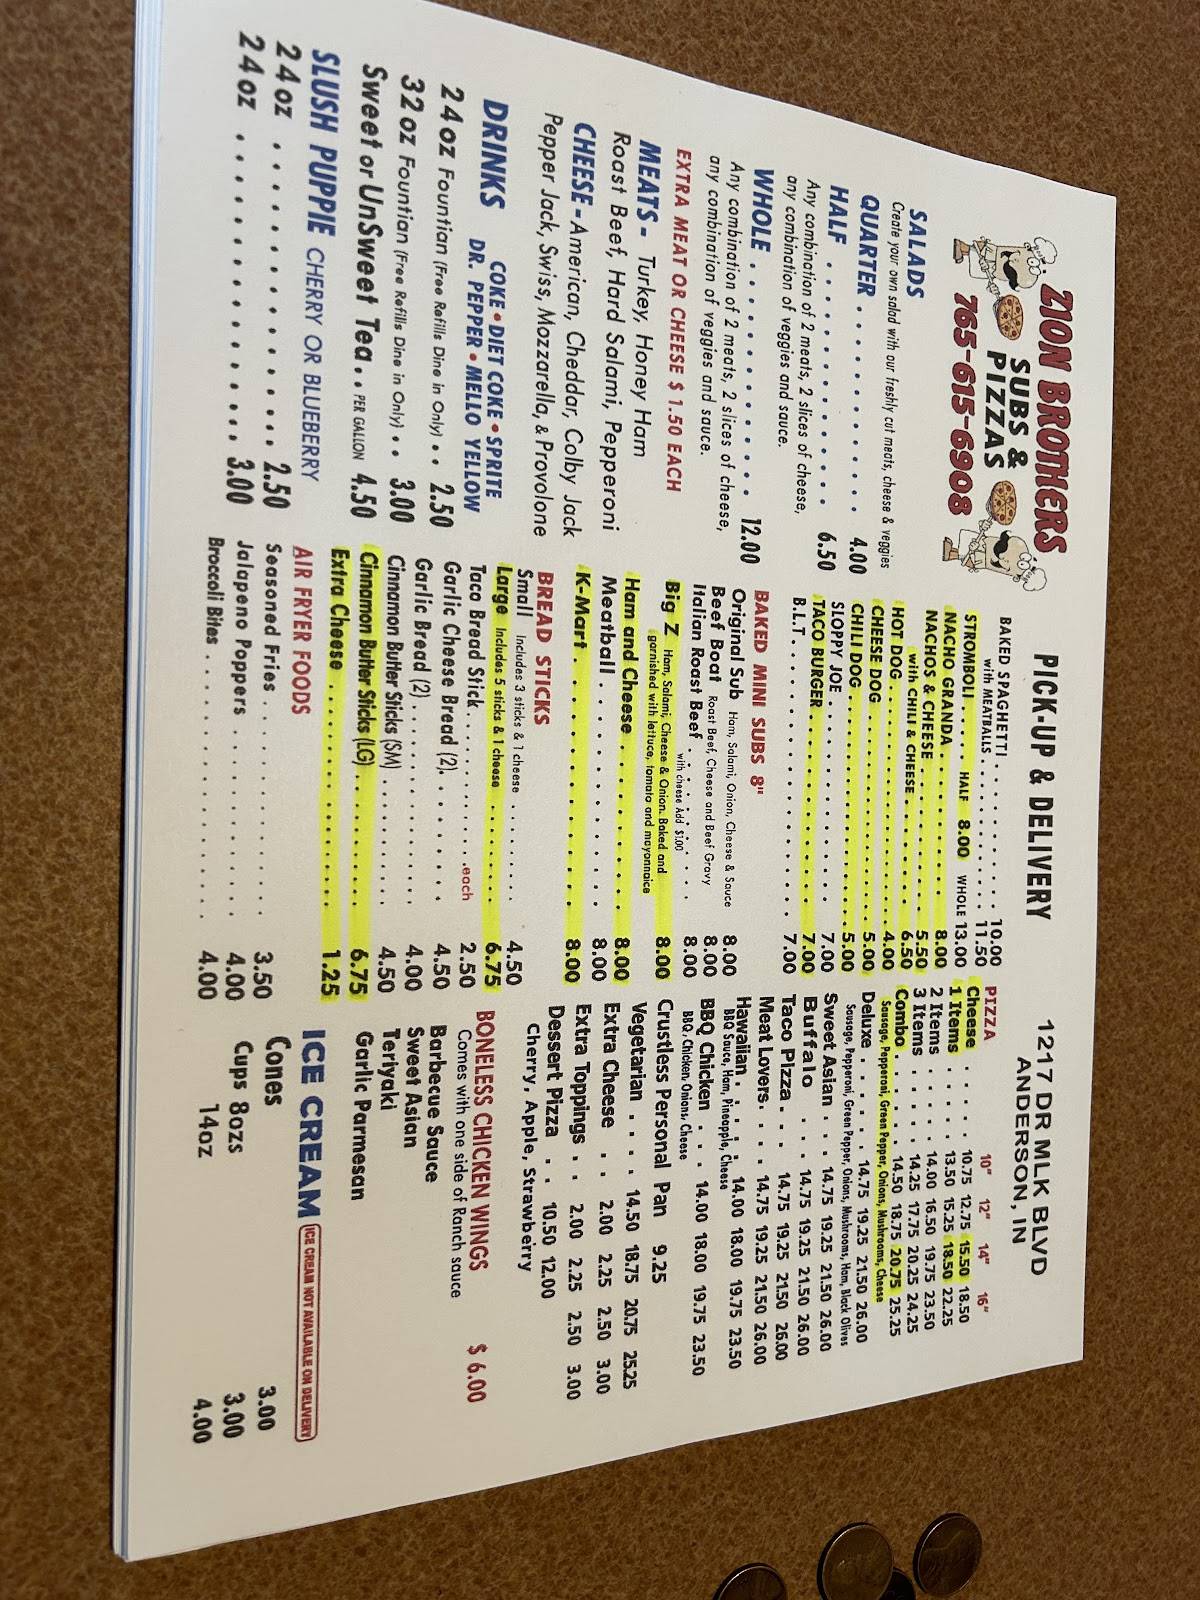 ZION BROTHERS
SUBS &
PIZZAS
765-615-6908
SALADS
Create your own salad with our freshly cut meats, cheese & veggies
QUARTER . . . . . . . . . . . . 4.00
HALF . . . . . . . . . . . . . . 6.50
Any combination of 2 meats, 2 slices of cheese,
any combination of veggies and sauce.
WHOLE . . . . . . . . . . . . . 12.00
Any combination of 2 meats, 2 slices of cheese,
any combination of veggies and sauce.
EXTRA MEAT OR CHEESE $ 1.50 EACH
MEATS - Turkey, Honey Ham
Roast Beef, Hard Salami, Pepperoni
CHEESE - American, Cheddar, Colby Jack
Pepper Jack, Swiss, Mozzarella, & Provolone
DRINKS COKE • DIET COKE • SPRITE
DR. PEPPER • MELLO YELLOW
24oz Fountian (Free Refills Dine in Only) . . 2.50
32oz Fountian (Free Refills Dine in Only) . . 3.00
Sweet or UnSweet Tea. . PER GALLON 4.50
SLUSH PUPPIE CHERRY OR BLUEBERRY
24oz . . . . . . . . . . . . . . . 2.50
24oz . . . . . . . . . . . . . . . 3.00
PICK-UP & DELIVERY
BAKED SPAGHETTI . . . . . . . . . . . 10.00
with MEATBALLS . . . . . . . . . . . 11.50
STROMBOLI . . . . . HALF 8.00 WHOLE 13.00
NACHO GRANDA . . . . . . . . . . . . 8.00
NACHOS & CHEESE . . . . . . . . . . 5.50
with CHILI & CHEESE . . . . . . . . . 6.50
HOT DOG . . . . . . . . . . . . . . . 4.00
CHEESE DOG . . . . . . . . . . . . . 5.00
CHILI DOG . . . . . . . . . . . . . . 5.00
SLOPPY JOE . . . . . . . . . . . . . 7.00
TACO BURGER . . . . . . . . . . . . 7.00
B.L.T. . . . . . . . . . . . . . . . . 7.00
BAKED MINI SUBS 8"
Original Sub Ham, Salami, Onion, Cheese & Sauce 8.00
Beef Boat Roast Beef, Cheese and Beef Gravy 8.00
Italian Roast Beef . . . . . . . . . 8.00
with cheese Add $1.00
Big Z Ham, Salami, Cheese & Onion. Baked and 8.00
garnished with lettuce, tomato and mayonnaice
Ham and Cheese . . . . . . . . . . . 8.00
Meatball . . . . . . . . . . . . . . 8.00
K-Mart . . . . . . . . . . . . . . . 8.00
BREAD STICKS
Small Includes 3 sticks & 1 cheese . . . . . . . 4.50
Large Includes 5 sticks & 1 cheese . . . . . . . 6.75
Taco Bread Stick . . . . . . . . . . .each 2.50
Garlic Cheese Bread (2). . . . . . . . 4.50
Garlic Bread (2) . . . . . . . . . . . 4.00
Cinnamon Butter Sticks (SM) . . . . . . 4.50
Cinnamon Butter Sticks (LG) . . . . . . 6.75
Extra Cheese . . . . . . . . . . . . . 1.25
AIR FRYER FOODS
Seasoned Fries . . . . . . . . . . . . 3.50
Jalapeno Poppers . . . . . . . . . . . 4.00
Broccoli Bites . . . . . . . . . . . . 4.00
1217 DR MLK BLVD
ANDERSON, IN
PIZZA 10" 12" 14" 16"
Cheese . . . . . 10.75 12.75 15.50 18.50
1 Items . . . . . 13.50 15.25 18.50 22.25
2 Items . . . . . 14.00 16.50 19.75 23.50
3 Items . . . . . 14.25 17.75 20.25 24.25
Combo . . . . . 14.50 18.75 20.75 25.25
Sausage, Pepperoni, Green Pepper, Onions, Mushrooms, Cheese
Deluxe . . . . . 14.75 19.25 21.50 26.00
Sausage, Pepperoni, Green Pepper, Onions, Mushrooms, Ham, Black Olives
Sweet Asian . . . 14.75 19.25 21.50 26.00
Buffalo . . . 14.75 19.25 21.50 26.00
Taco Pizza . . . 14.75 19.25 21.50 26.00
Meat Lovers. . . . 14.75 19.25 21.50 26.00
Hawaiian . . . . . 14.00 18.00 19.75 23.50
BBQ Sauce, Ham, Pineapple, Cheese
BBQ Chicken . . . 14.00 18.00 19.75 23.50
BBQ, Chicken, Onions, Cheese
Crustless Personal Pan 9.25
Vegetarian . . . . 14.50 18.75 20.75 25.25
Extra Cheese . . 2.00 2.25 2.50 3.00
Extra Toppings . . 2.00 2.25 2.50 3.00
Dessert Pizza . . 10.50 12.00
Cherry, Apple, Strawberry
BONELESS CHICKEN WINGS $ 6.00
Comes with one side of Ranch sauce
Barbecue Sauce
Sweet Asian
Teriyaki
Garlic Parmesan
ICE CREAM ICE CREAM NOT AVAILABLE ON DELIVERY
Cones 3.00
Cups 8ozs 3.00
14oz 4.00